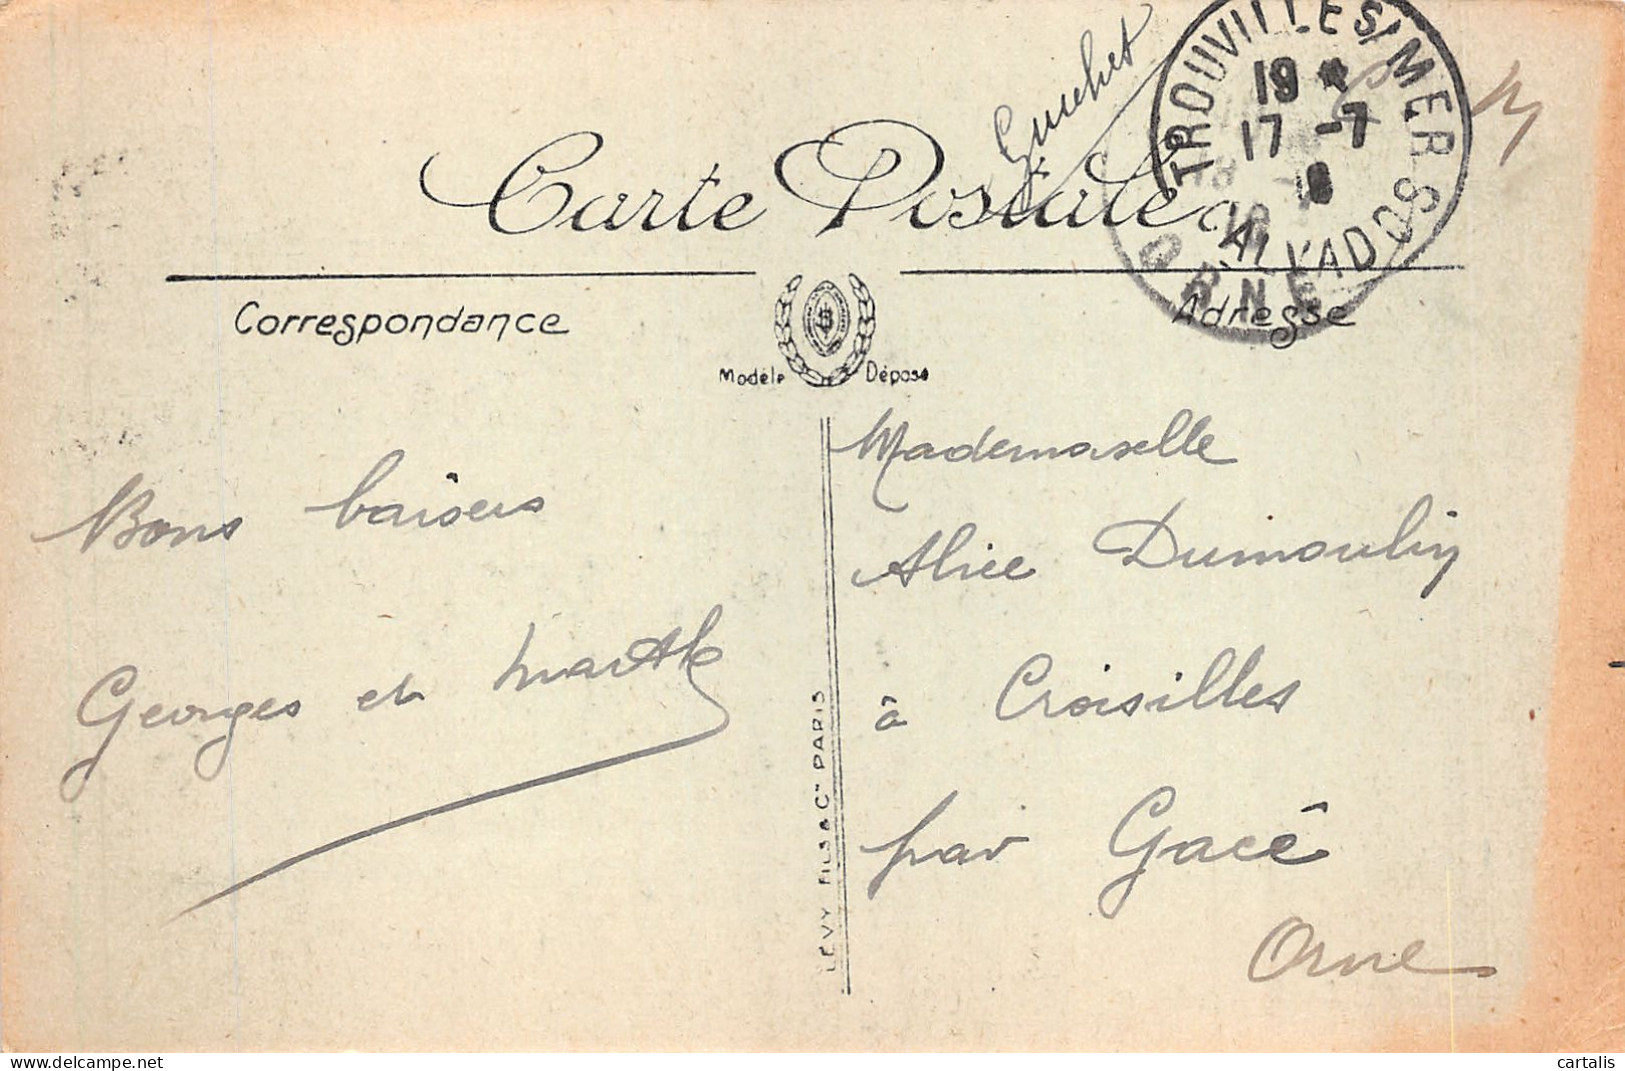 Guichet
TROUVILLE S/ MER
19 *
17 -7
CALVADOS
ORNE
Carte Postale
Correspondance
Adresse
Modèle Déposé
Bons baisers
Georges et Marthe
LÉVY FILS & Cie PARIS
Mademoiselle
Alice Dumoulin
à Croisilles
par Gacé
Orne
cartalis